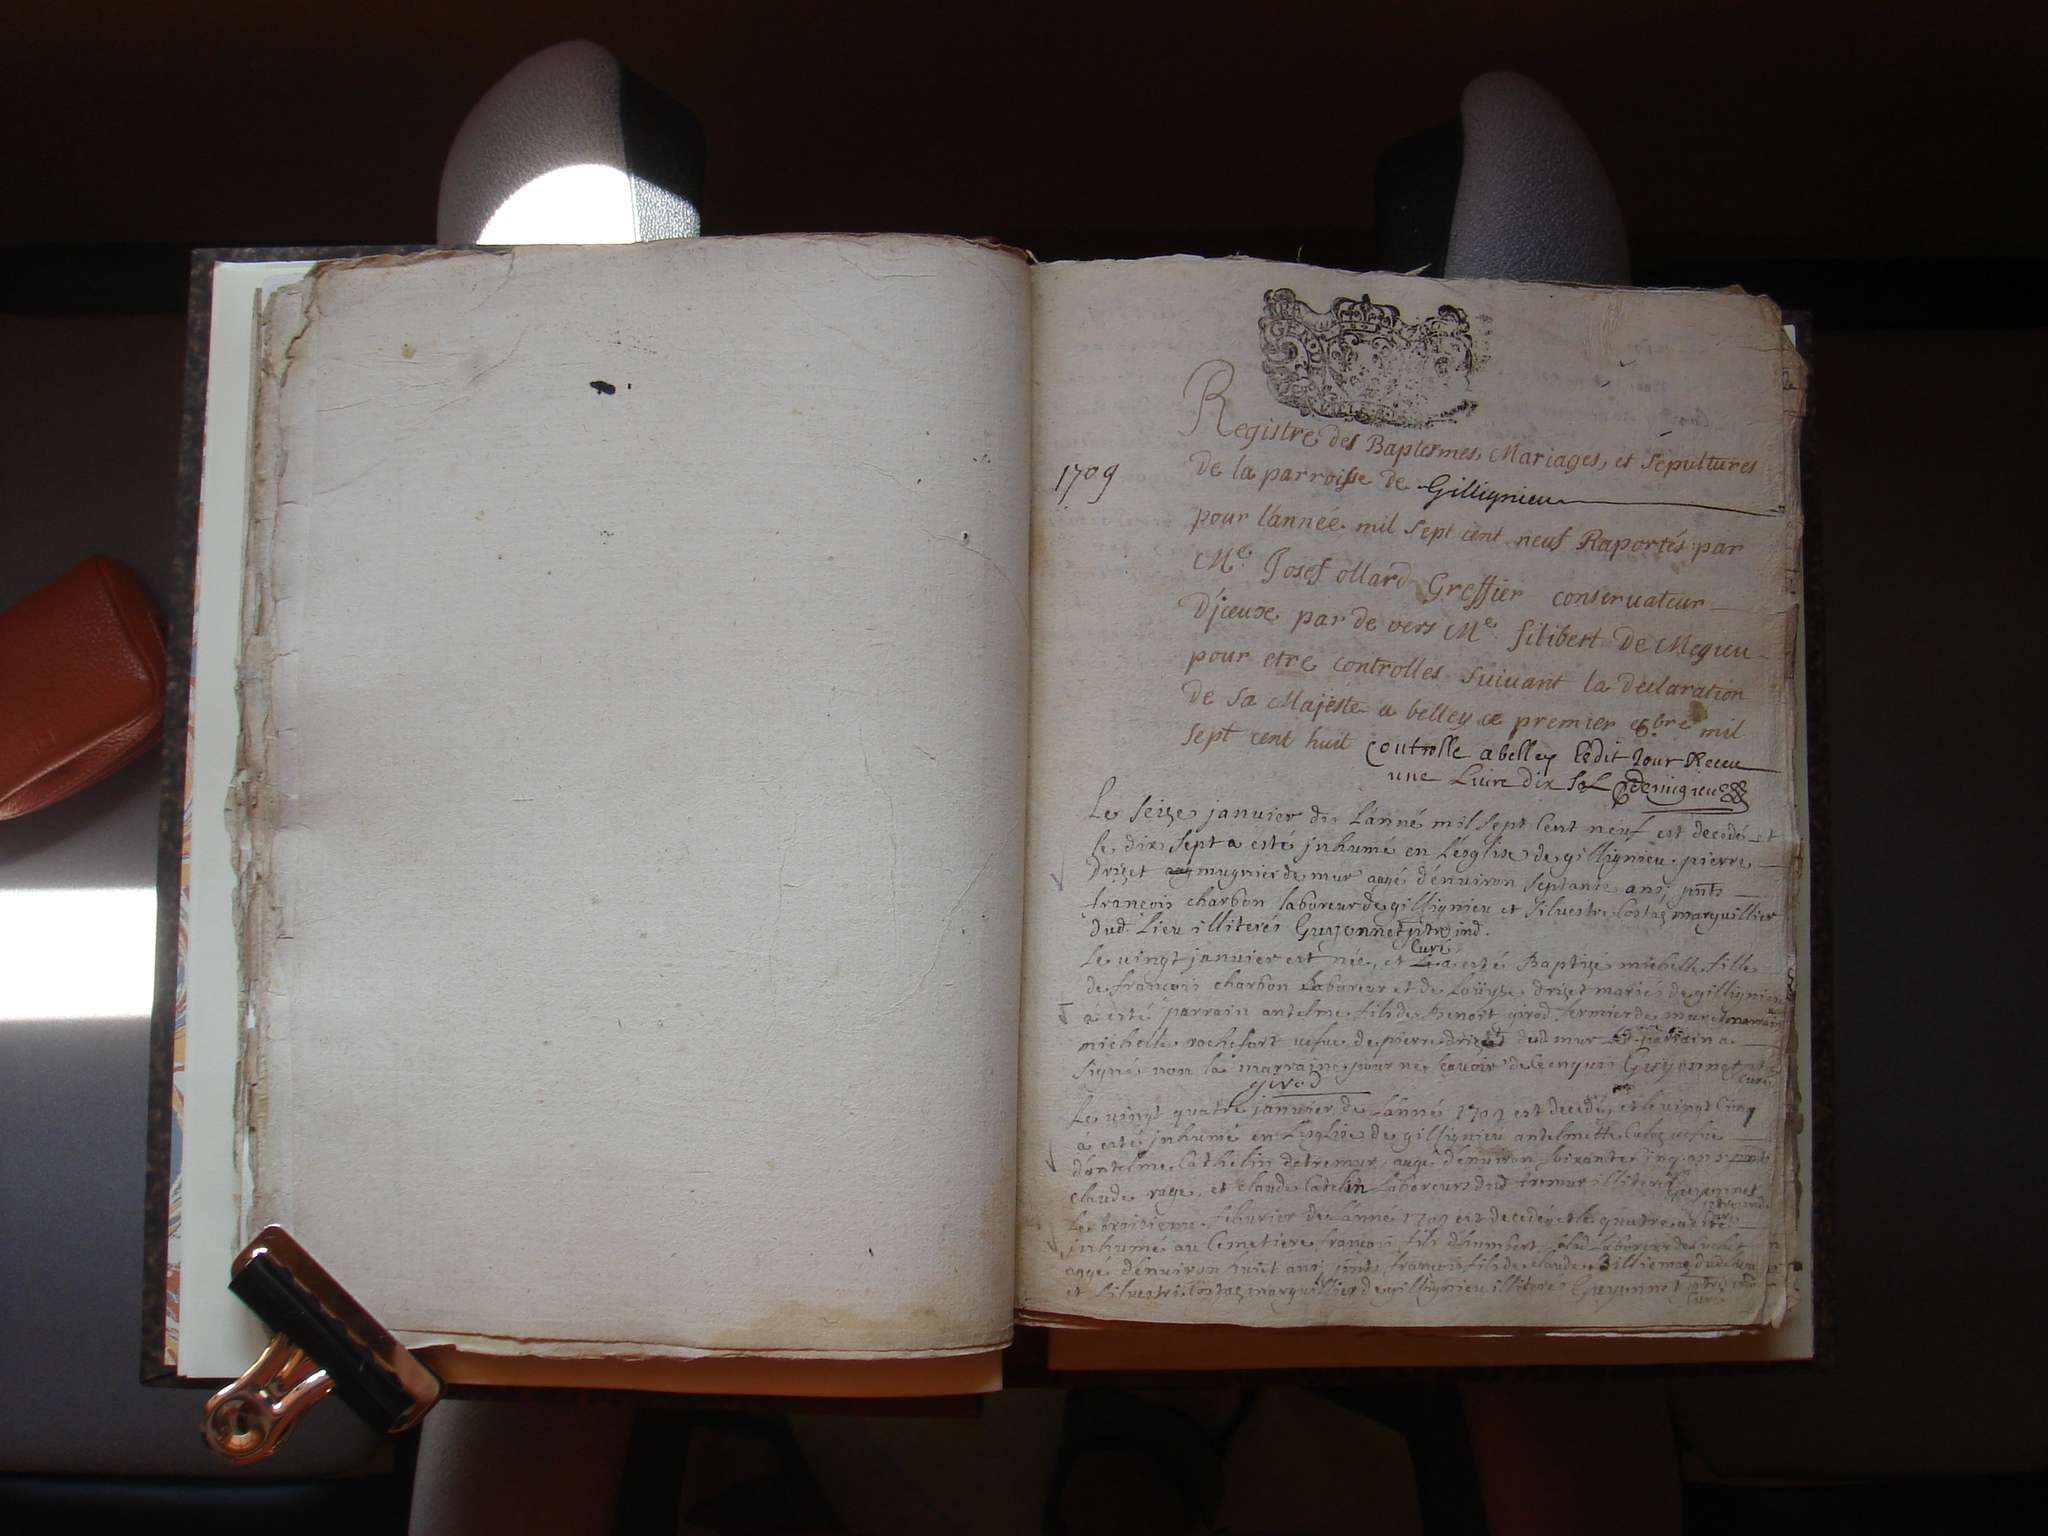 GEN
Registre des Baptesmes, Mariages, et sepultures
de la parroisse de Gillignieu
1709
pour l'année mil sept cent neuf Raportés par
Me Josef ollard Greffier conseruateur
D'jceuxe par de vers Me filibert De Megieu
pour etre controlles suiuant la declaration
de sa Majeste a belley ce premier 8.bre mil
sept cent huit controlle a belley ledit Jour Receu
une Liure dix sol
Le seize januier de L'anné mil sept Cent neuf est decedé et
le dix sept a esté jnhumé en L'eglise de gillignieu pierre
drizet mugnier de mur aagé d'enuiron septante ans, pnts
francois charbon laboreur de gillignieu et siluestre Costaz marguillier
dud. Lieu illiterés Guyonnet ptre ind.
Curé
Le vingt januier est née, et a esté Baptizé michelle fille
de francois charbon Laboreur et de Loüyse drizet mariés de gillignieu
a esté parrain antelme fils de Benoit girod fermier de mur et marraine
michelle rochefort uefue de pierre drizet dud mur Le parrain a
signé non la marraine pour ne scauoir de ce enquis Guyonnet ptre
curé
girod
Le vingt quatre januier de L'anné 1709 est decedé, et le vingt Cinq
a esté jnhumé en L'eglise de gillignieu antelmette Culoz uefue
d'antelme Cathelin de tremur aagé d'enuiron soixante cinq ans pnts
claude roge, et claude Catelin Laboreurs dud tremur illiterés Guyonnet
ptre ind
Curé
Le troisieme feburier de L'anné 1709 est decedé et le quatre a esté
jnhumé au Cemetiere francois fils d'humbert Laboreur de
aagé d'enuiron huit ans, pnts francois fils de claude Billiemaz dud lieu
et siluestre Costaz marguillier de gillignieu illiterés Guyonnet ptre ind
Curé